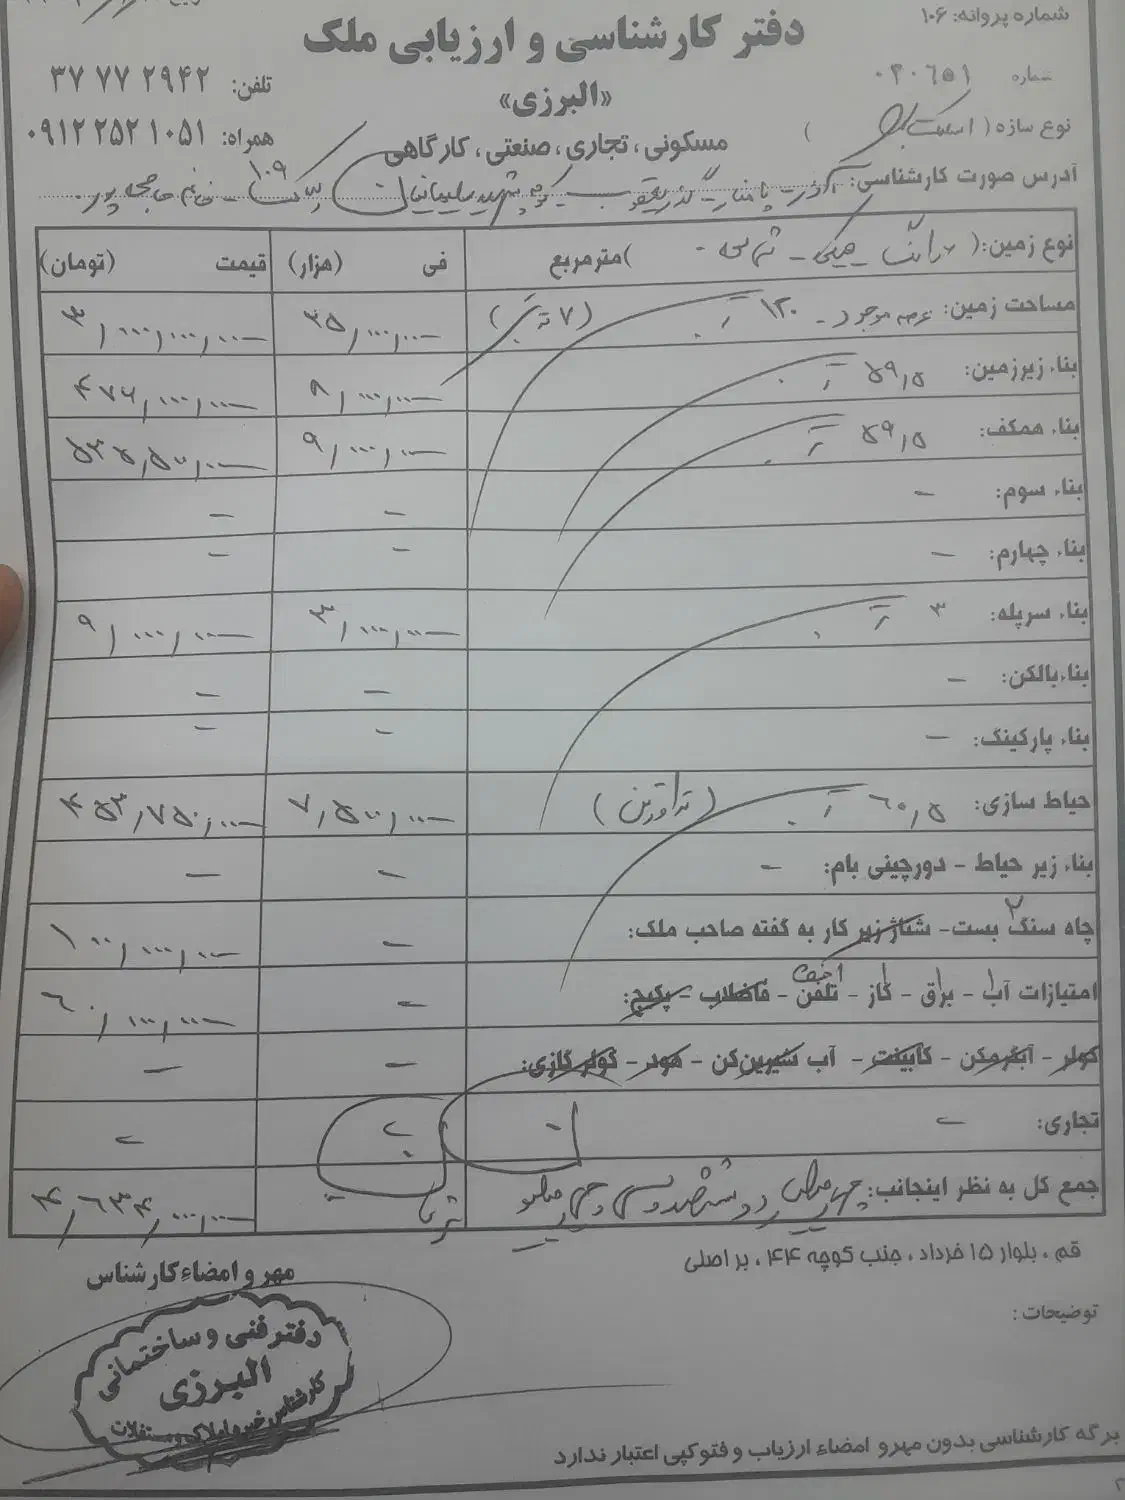 شماره پروانه: ۱۰۶
دفتر کارشناسی و ارزیابی ملک
«البرزی»
مسکونی، تجاری، صنعتی، کارگاهی
تلفن: ۳۷ ۷۷ ۲۹۴۲
همراه: ۰۹۱۲ ۲۵۲ ۱۰۵۱
شماره ۰۲۰۶۵۱
نوع سازه ( )
آدرس صورت کارشناسی: آذر - پامنار - گذر یعقوب - کوچه شهید سلیمانیان - پلاک ۱۰۹ - خانم حاجی پور
نوع زمین: ( ) مترمربع فی (هزار) قیمت (تومان)
مساحت زمین: عرصه موجود - ۱۲۰ ۳۵/۰۰۰/۰۰۰ ۳/۰۰۰/۰۰۰/۰۰۰
بناء زیرزمین: ۵۹/۵ ۸/۰۰۰/۰۰۰ ۴۷۶/۰۰۰/۰۰۰
بناء همکف: ۵۹/۵ ۹/۰۰۰/۰۰۰ ۵۳۵/۵۰۰/۰۰۰
بناء سوم: - - -
بناء چهارم: - - -
بناء سرپله: ۳ ۳/۰۰۰/۰۰۰ ۹/۰۰۰/۰۰۰
بناء بالکن: - - -
بناء پارکینگ: - - -
حیاط سازی: ۶۰/۵ ۷/۵۰۰/۰۰۰ ۴۵۳/۷۵۰/۰۰۰
بناء زیر حیاط - دورچینی بام: - - -
چاه سنگ بست - شناژ زیر کار به گفته صاحب ملک: - ۱۰۰/۰۰۰/۰۰۰
امتیازات آب - برق - گاز - تلفن - فاضلاب - پکیج: - ۶۰/۰۰۰/۰۰۰
کولر - آبگرمکن - کابینت - آب شیرین‌کن - هود - کولر گازی: - -
تجاری: - - -
جمع کل به نظر اینجانب: چهار میلیارد و ششصد و سی و چهار میلیون ۴/۶۳۴/۰۰۰/۰۰۰
قم، بلوار ۱۵ خرداد، جنب کوچه ۴۴، بر اصلی
مهر و امضاء کارشناس
توضیحات:
دفتر فنی و ساختمانی
البرزی
کارشناس خبره املاک و مستغلات
برگه کارشناسی بدون مهر و امضاء ارزیاب و فتوکپی اعتبار ندارد